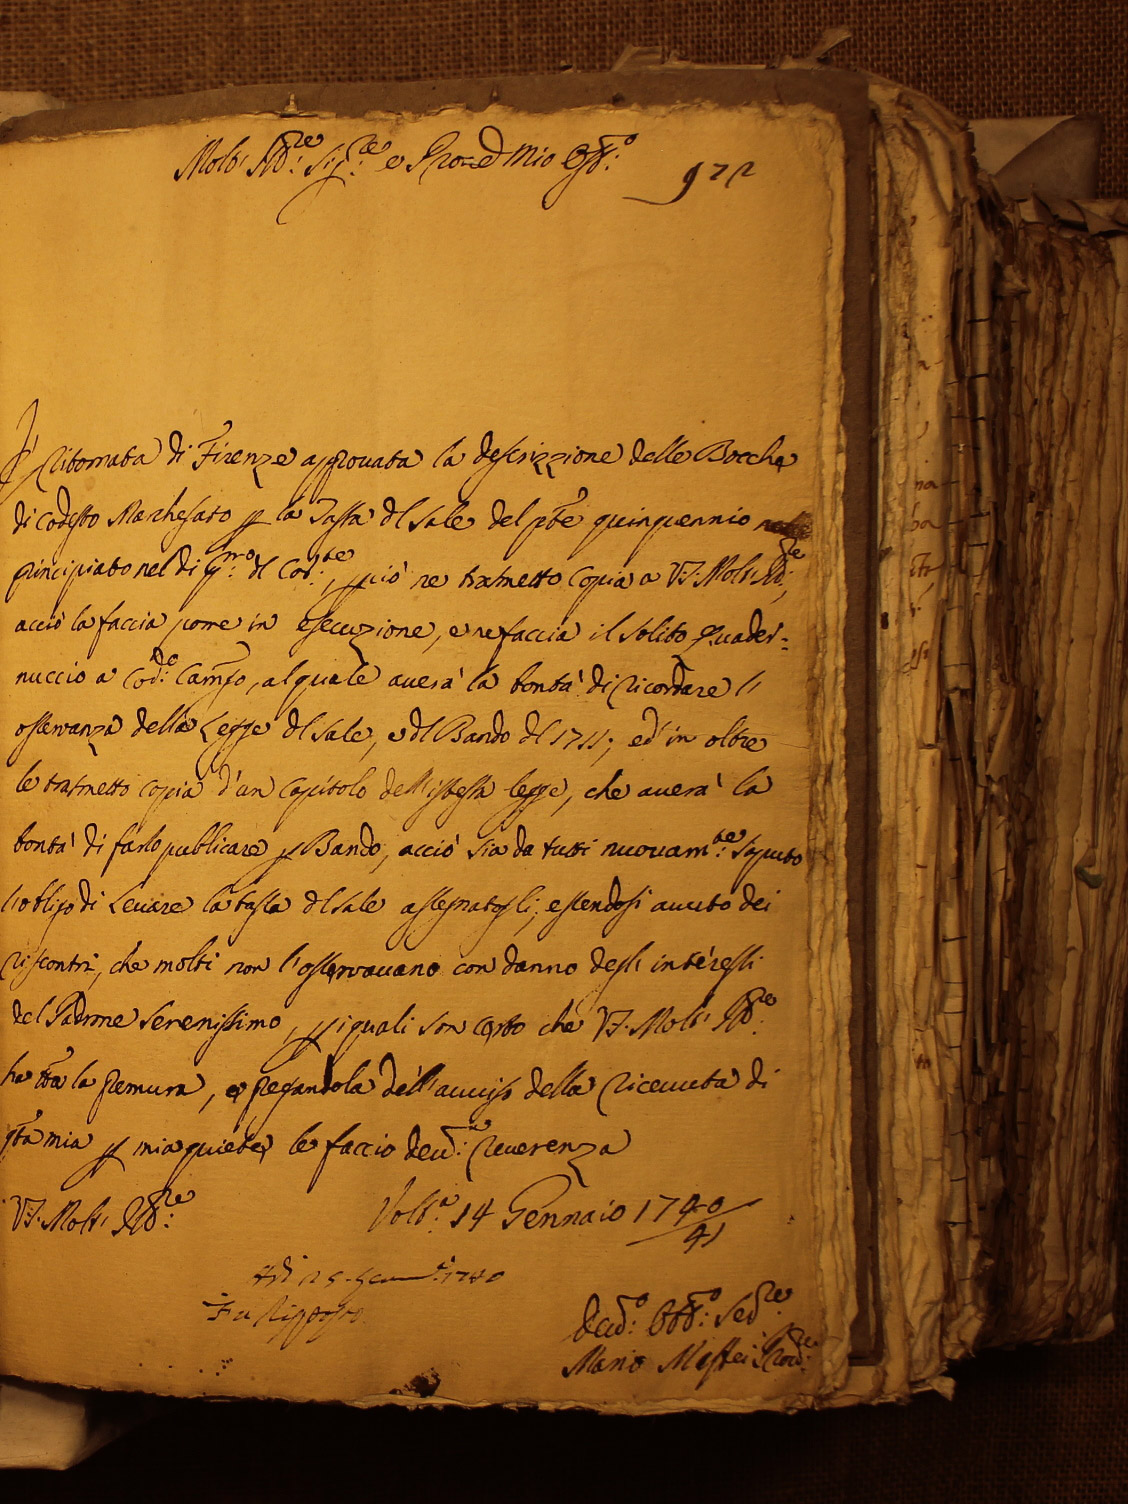 Molt' Ill.re Sig.re e Pron.e Mio Oss.o
972
È ritornata di Firenze approuata la descrizzione delle Bocche
di codesto Marchesato p la Tassa dl Sale del pñte quinquennio
principiato nel dì p.mo dl Cor.te, p ciò ne trasmetto Copia a V.S. Molt' Ill.re,
acciò la faccia porre in esecuzione, e ne faccia il solito Quader=
nuccio a cod.o Camp.o, al quale auerà la bontà di ricordare l'
osservanza della Legge dl Sale, e dl Bando dl 1711; ed in oltre
le trasmetto copia d'un capitolo dell'istessa legge, che auerà la
bontà di farlo publicare p Bando, acciò sia da tutti nuouam.te saputo
l'obligo di Leuare la tassa dl sale assegnatogli, essendosi auuto dei
riscontri, che molti non l'osseruauano con danno degl'interessi
del Padrone Serenissimo, p i quali son certo che V.S. Molt' Ill.re
ha tta la premura, e pregandola dell'auuiso della riceuuta di
qta mia p mia quiete, le faccio deu.ma reuerenza
V.S. Molt' Ill.re
Volt.a 14 Gennaio 1740/41
Adì 25 Genn.o 1740
Fu Risposto
Deu.o Obb.o Ser.e
Mario Maffei Prou.re